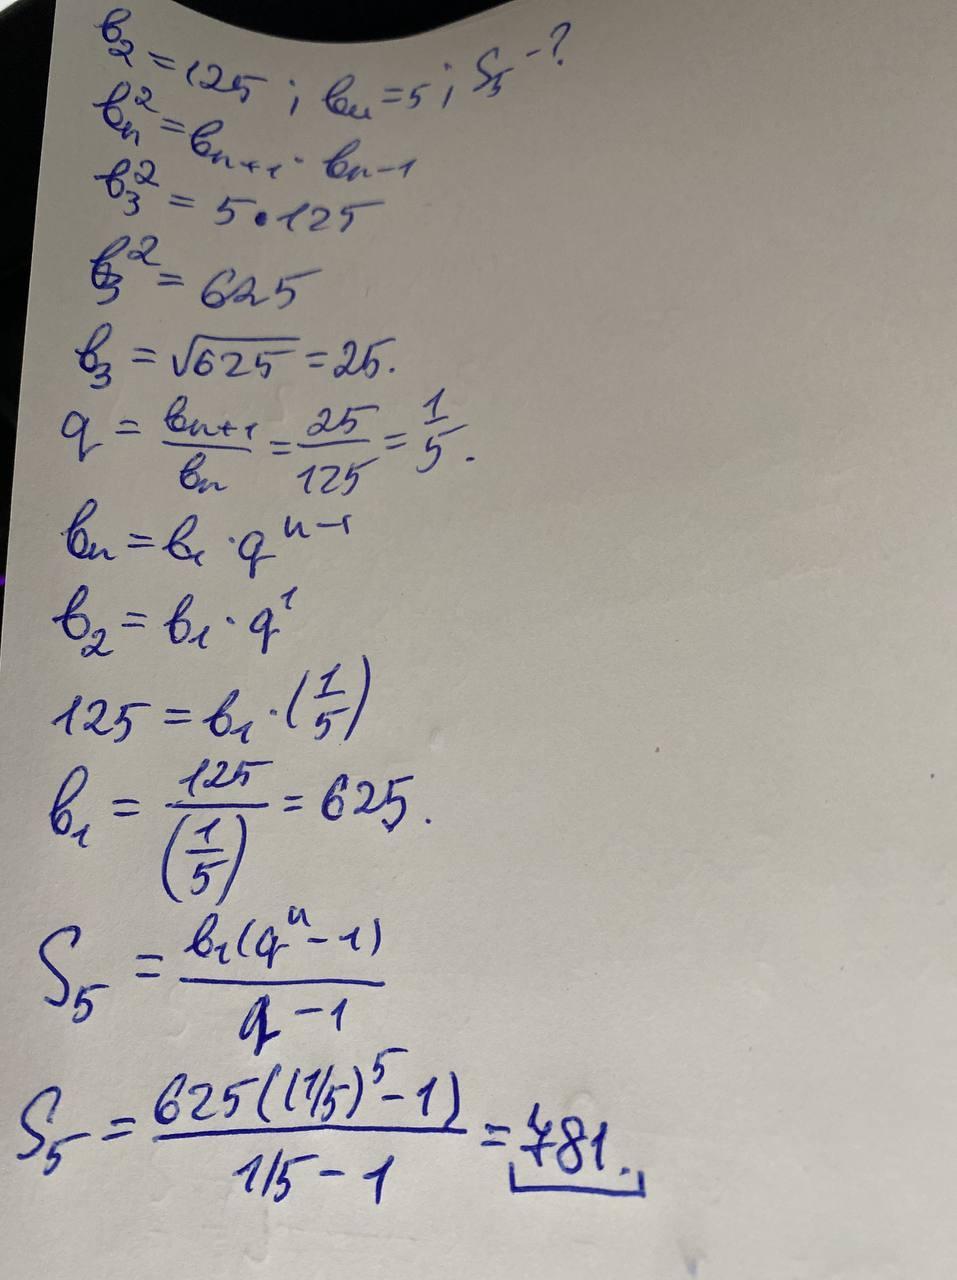 b₂ = 125 ; b₄ = 5 ; S₅ - ?
bₙ² = bₙ₊₁ · bₙ₋₁
b₃² = 5 · 125
b₃² = 625
b₃ = √625 = 25.
q = bₙ₊₁/bₙ = 25/125 = 1/5.
bₙ = b₁ · qⁿ⁻¹
b₂ = b₁ · q¹
125 = b₁ · (1/5)
b₁ = 125/(1/5) = 625.
S₅ = b₁(qⁿ - 1)/(q - 1)
S₅ = 625((1/5)⁵ - 1)/(1/5 - 1) = 781.